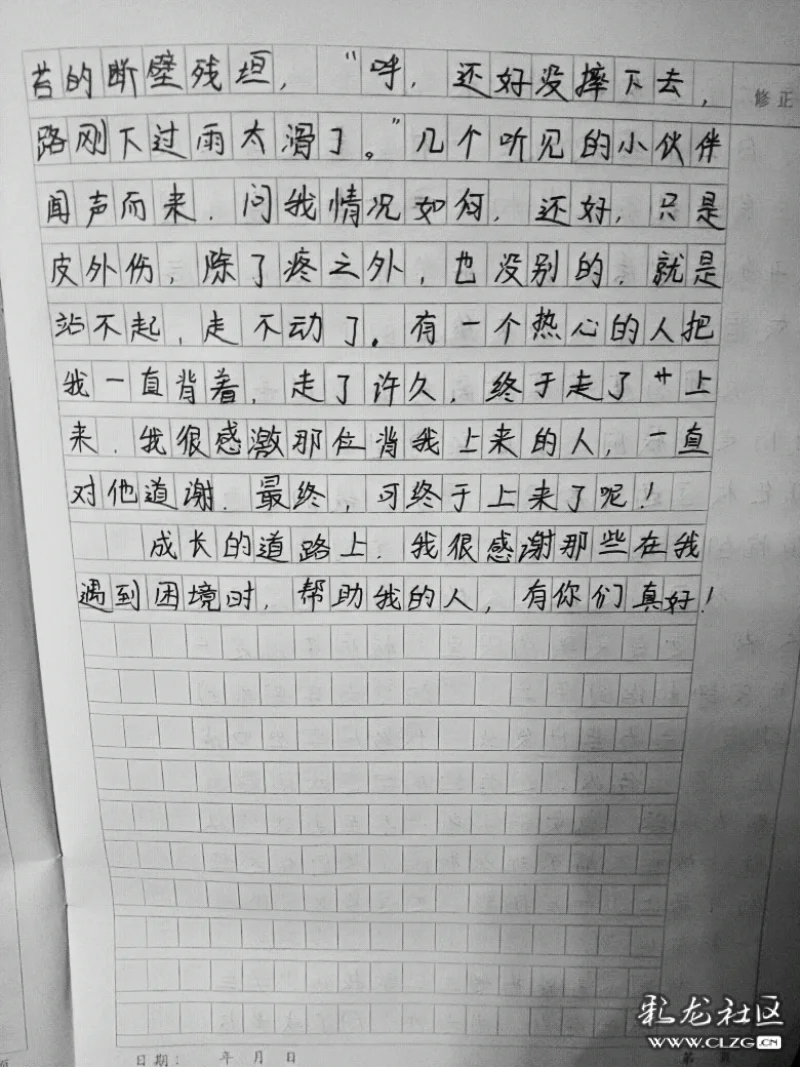 苔的断壁残垣，“呼，还好没摔下去，
修正
路刚下过雨太滑了。”几个听见的小伙伴
闻声而来，问我情况如何，还好，只是
皮外伤，除了疼之外，也没别的，就是
站不起，走不动了。有一个热心的人把
我一直背着，走了许久，终于走了艹上
来，我很感激那位背我上来的人，一直
对他道谢．最终，可终于上来了呢！
成长的道路上，我很感谢那些在我
遇到困境时，帮助我的人，有你们真好！
日期： 年 月 日
第 页
彩龙社区
WWW.CLZG.CN